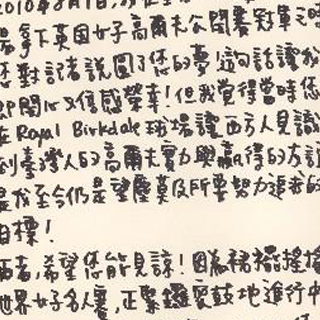 2010年8月1日,
拿下英国女子高爾夫公開賽冠軍之時
您對記者說圓了您的夢!這句話讓我
即開心又倍感榮幸!但我覺得當時您
在 Royal Birkdale 球場讓西方人見識
到臺灣人的高爾夫實力與贏得的方式
是我至今仍是望塵莫及所要努力追我的
目標!
再者,希望您能見諒!因為裙襬搖搖
世界女子名人賽,正緊鑼密鼓地進行中